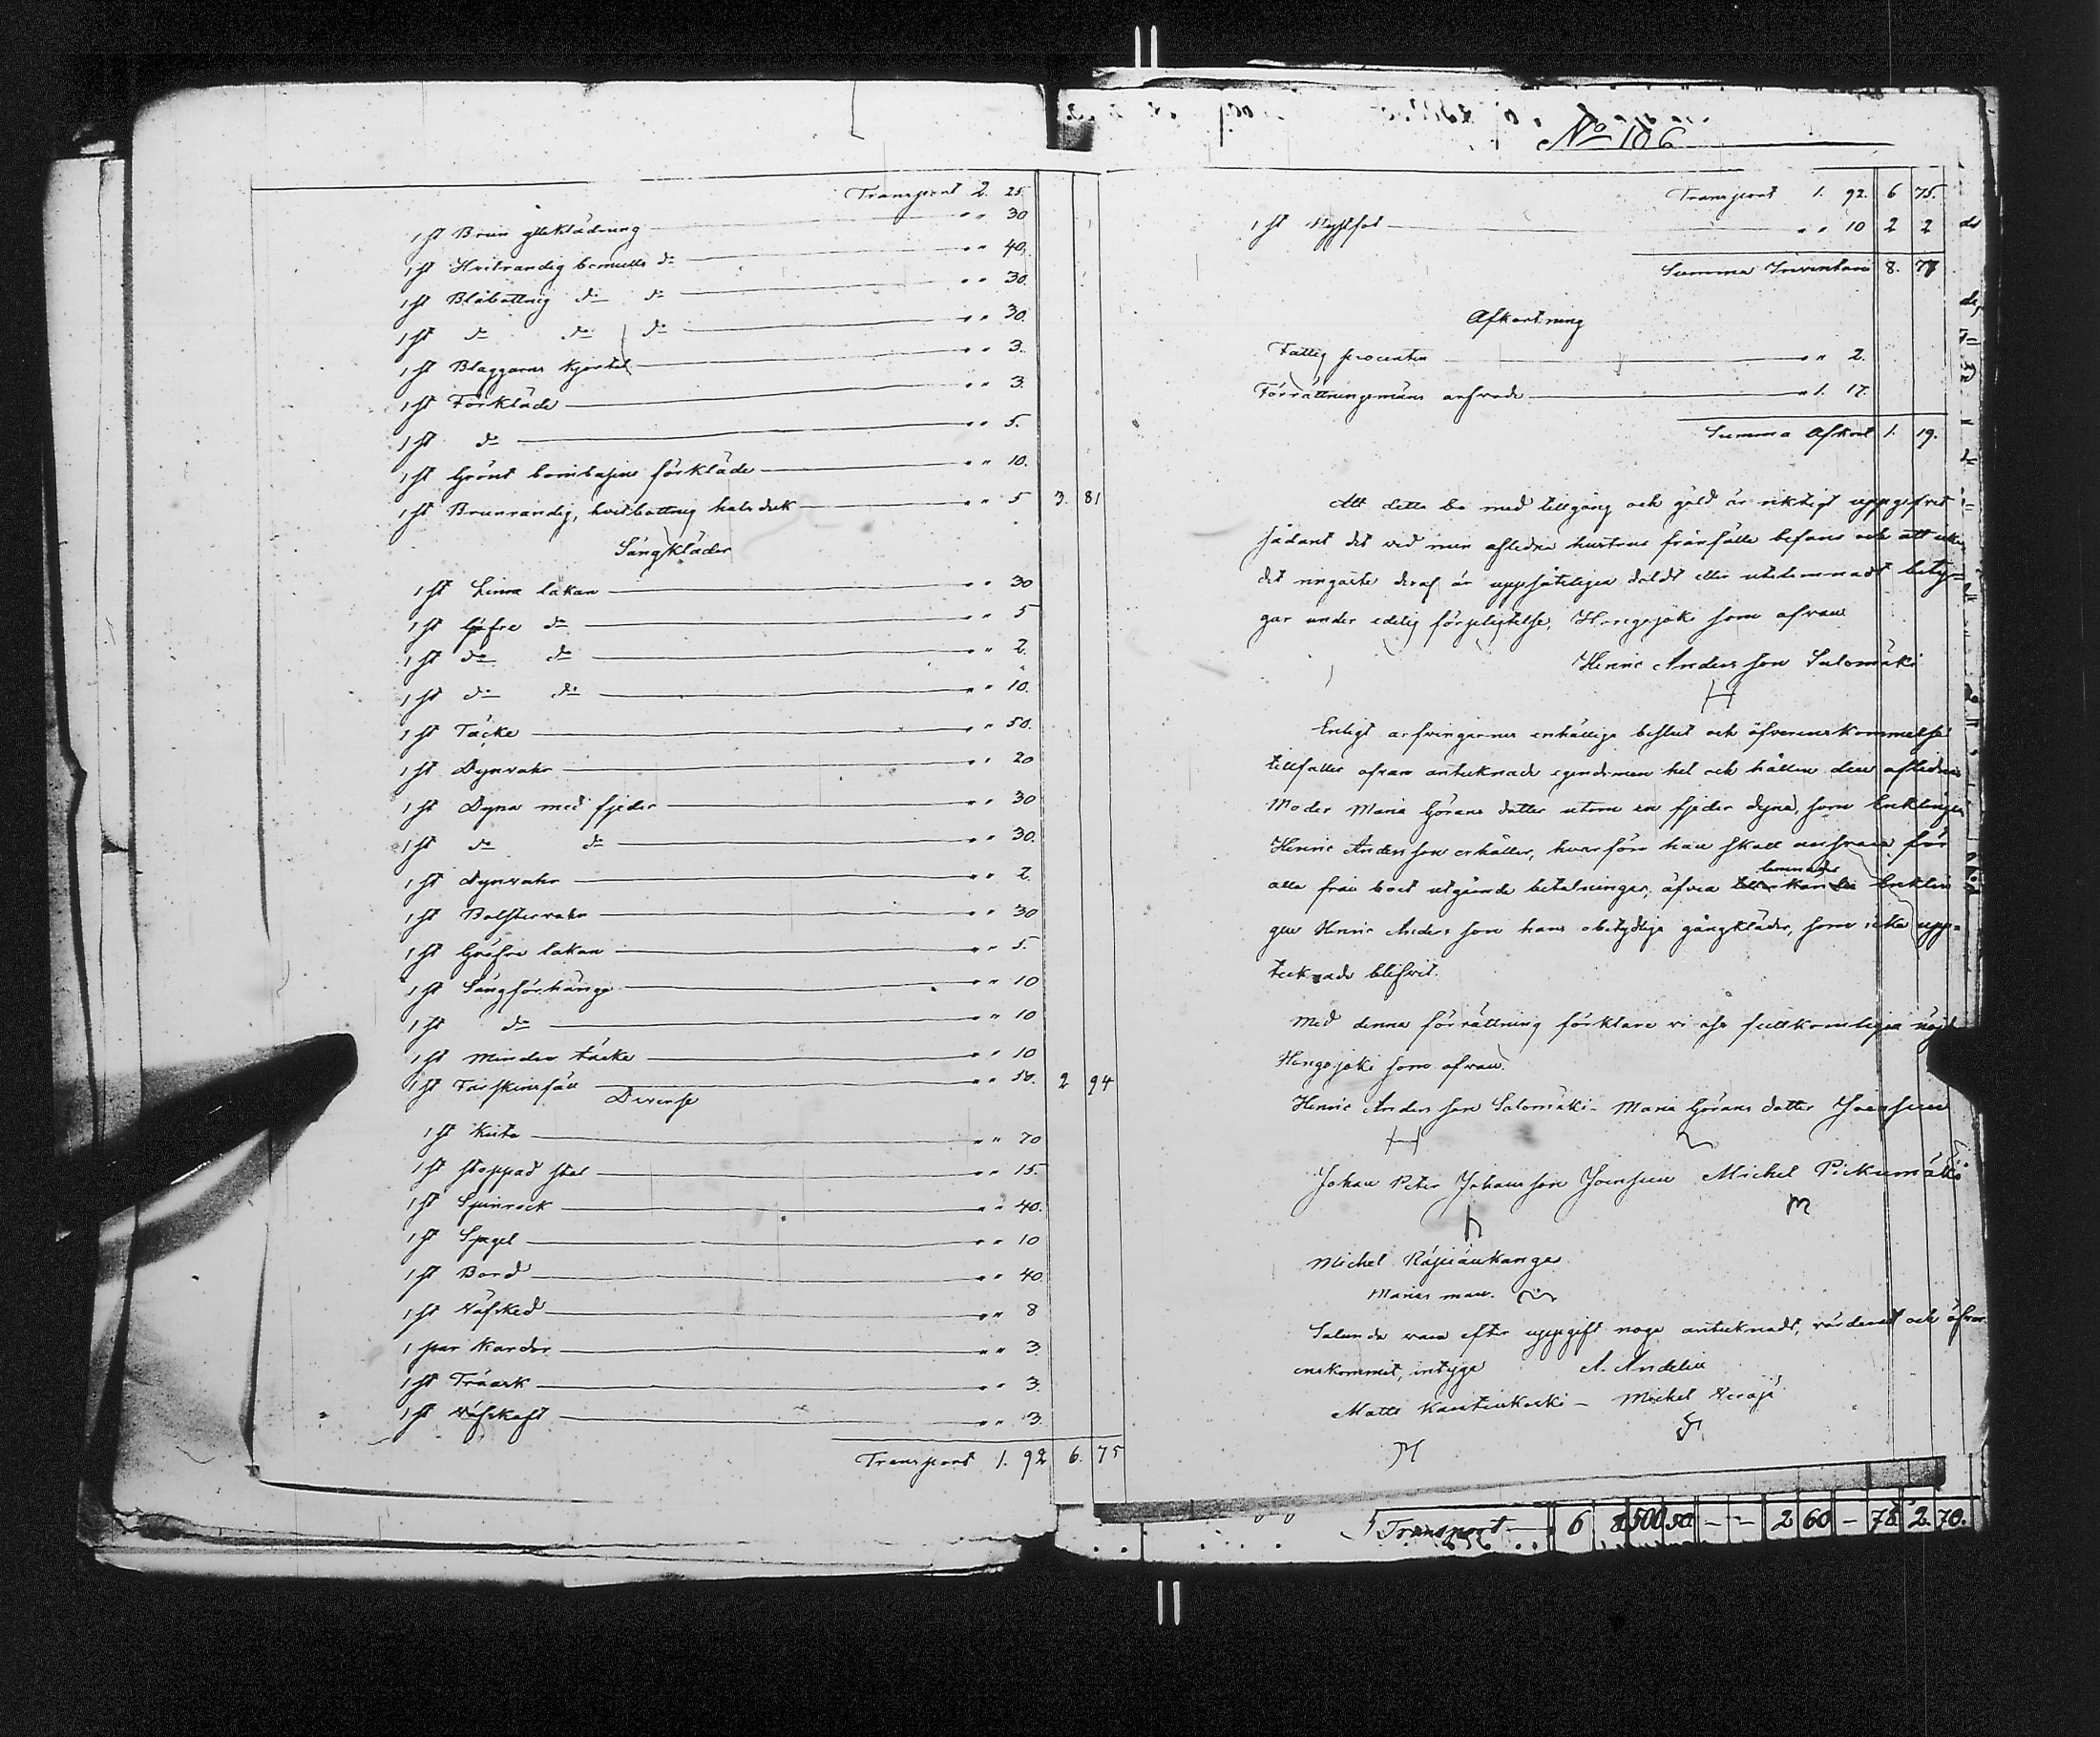 Transport 2. 25
1 st Brun ylleklädning " " 30
1 st Hvitrandig bomulls do " " 40
1 st Blåbottnig do do " " 30
1 st do do do " " 30.
1 st Blaggarns kjortel " " 3.
1 st Förkläde " " 3.
1 st do " " 5.
1 st Grönt bombasins förkläde " " 10.
1 st Brunrandig, hvitbottnig halsduk " " 5 3. 81
Sängkläder
1 st Linne lakan " " 30
1 st Gröfre do " " 5
1 st do do " " 2.
1 st do do " " 10.
1 st Täcke " " 50.
1 st Dynvahr " " 20
1 st Dyna med fjeder " " 30
1 st do do " " 30.
1 st Dynvahr " " 2.
1 st Bolstervahr " " 30
1 st Gröfre lakan " " 5.
1 st Sängförhänge " " 10
1 st do " " 10
1 st mindre täcke " " 10
1 st Fårskinsfäll " " 50. 2 94
Diverse
1 st Kista " " 70
1 st stoppad stol " " 15.
1 st Spinrock " " 40.
1 st Spegel " " 10
1 st Bord " " 40
1 stVäfsked " " 8
1 par Kardor " " 3.
1 st Träask " " 3.
1 st Väfskaft " " 3
Transport 1. 92 6. 75
No 106
Transport 1. 92. 6 75.
1 st Nystfot " " 10 2 2
Summa Inventarii 8. 77
Afkortning
Fattig procenten " " 2.
Förrättningsmäns arfvode " 1. 17.
Summa Afkort 1. 19.
Att detta bo med tillgång och gäld är riktigt uppgifvet
sådant det vid min aflidna hustrus frånfälle befans och att icke
det ringaste deraf är uppsåteligen doldt eller utelemnadt bety=
gar under edelig förpligtelse, Hongojoki som ofvan
Henric Andersson Salomäki
Enligt arfvingarnes enhällige beslut och öfverenskommelse
tillfaller ofvan antecknade egendomen hel och hållen den aflidnas
Moder Maria Görans dotter utom en fjeder dyna, som Enklingen
Henric Andersson erhåller, hvarför han skall ansvara för
alla från boet utgående betalningar, äfven lemnades Enklin
gen Henric Andersson hans obetydliga gångkläder, som icke upp=
tecknade blifvit.
Med denna förrättning förklare vi oss fullkomligen nöjd
Hongojoki som ofvan.
Henric Andersson Salomäki - Maria Görans dotter Joensuu
Johan Peter Johansson Joensuu Michel Pickumäki
Michel
Marias man.
Salunda vara efter uppgift noga antecknadt, värderadt och öfver
enskommit, intyga A. Andelin
Matts Kauttukoski - Michel
Transport 6 50 - - 2 60 - 78 2. 70.